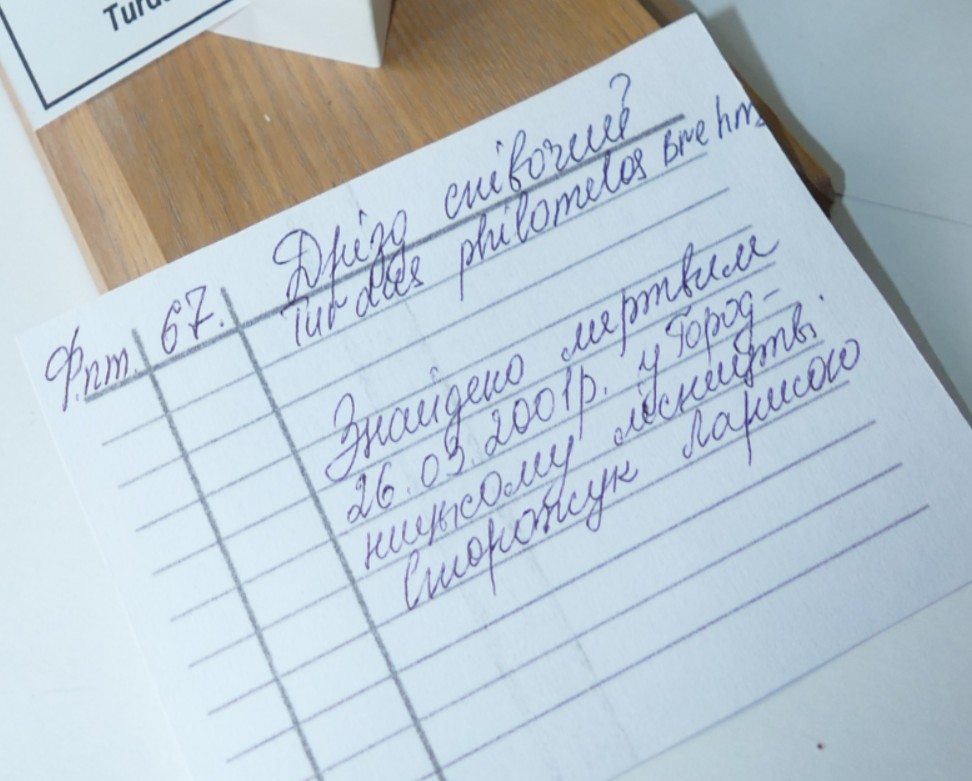 Turd
Ф.пт. 67. Дрізд співочий?
Turdus philomelos Brehm
Знайдено мертвим
26.03.2001р. у Город-
ницькому лісництві.
Сторожук Ларисою